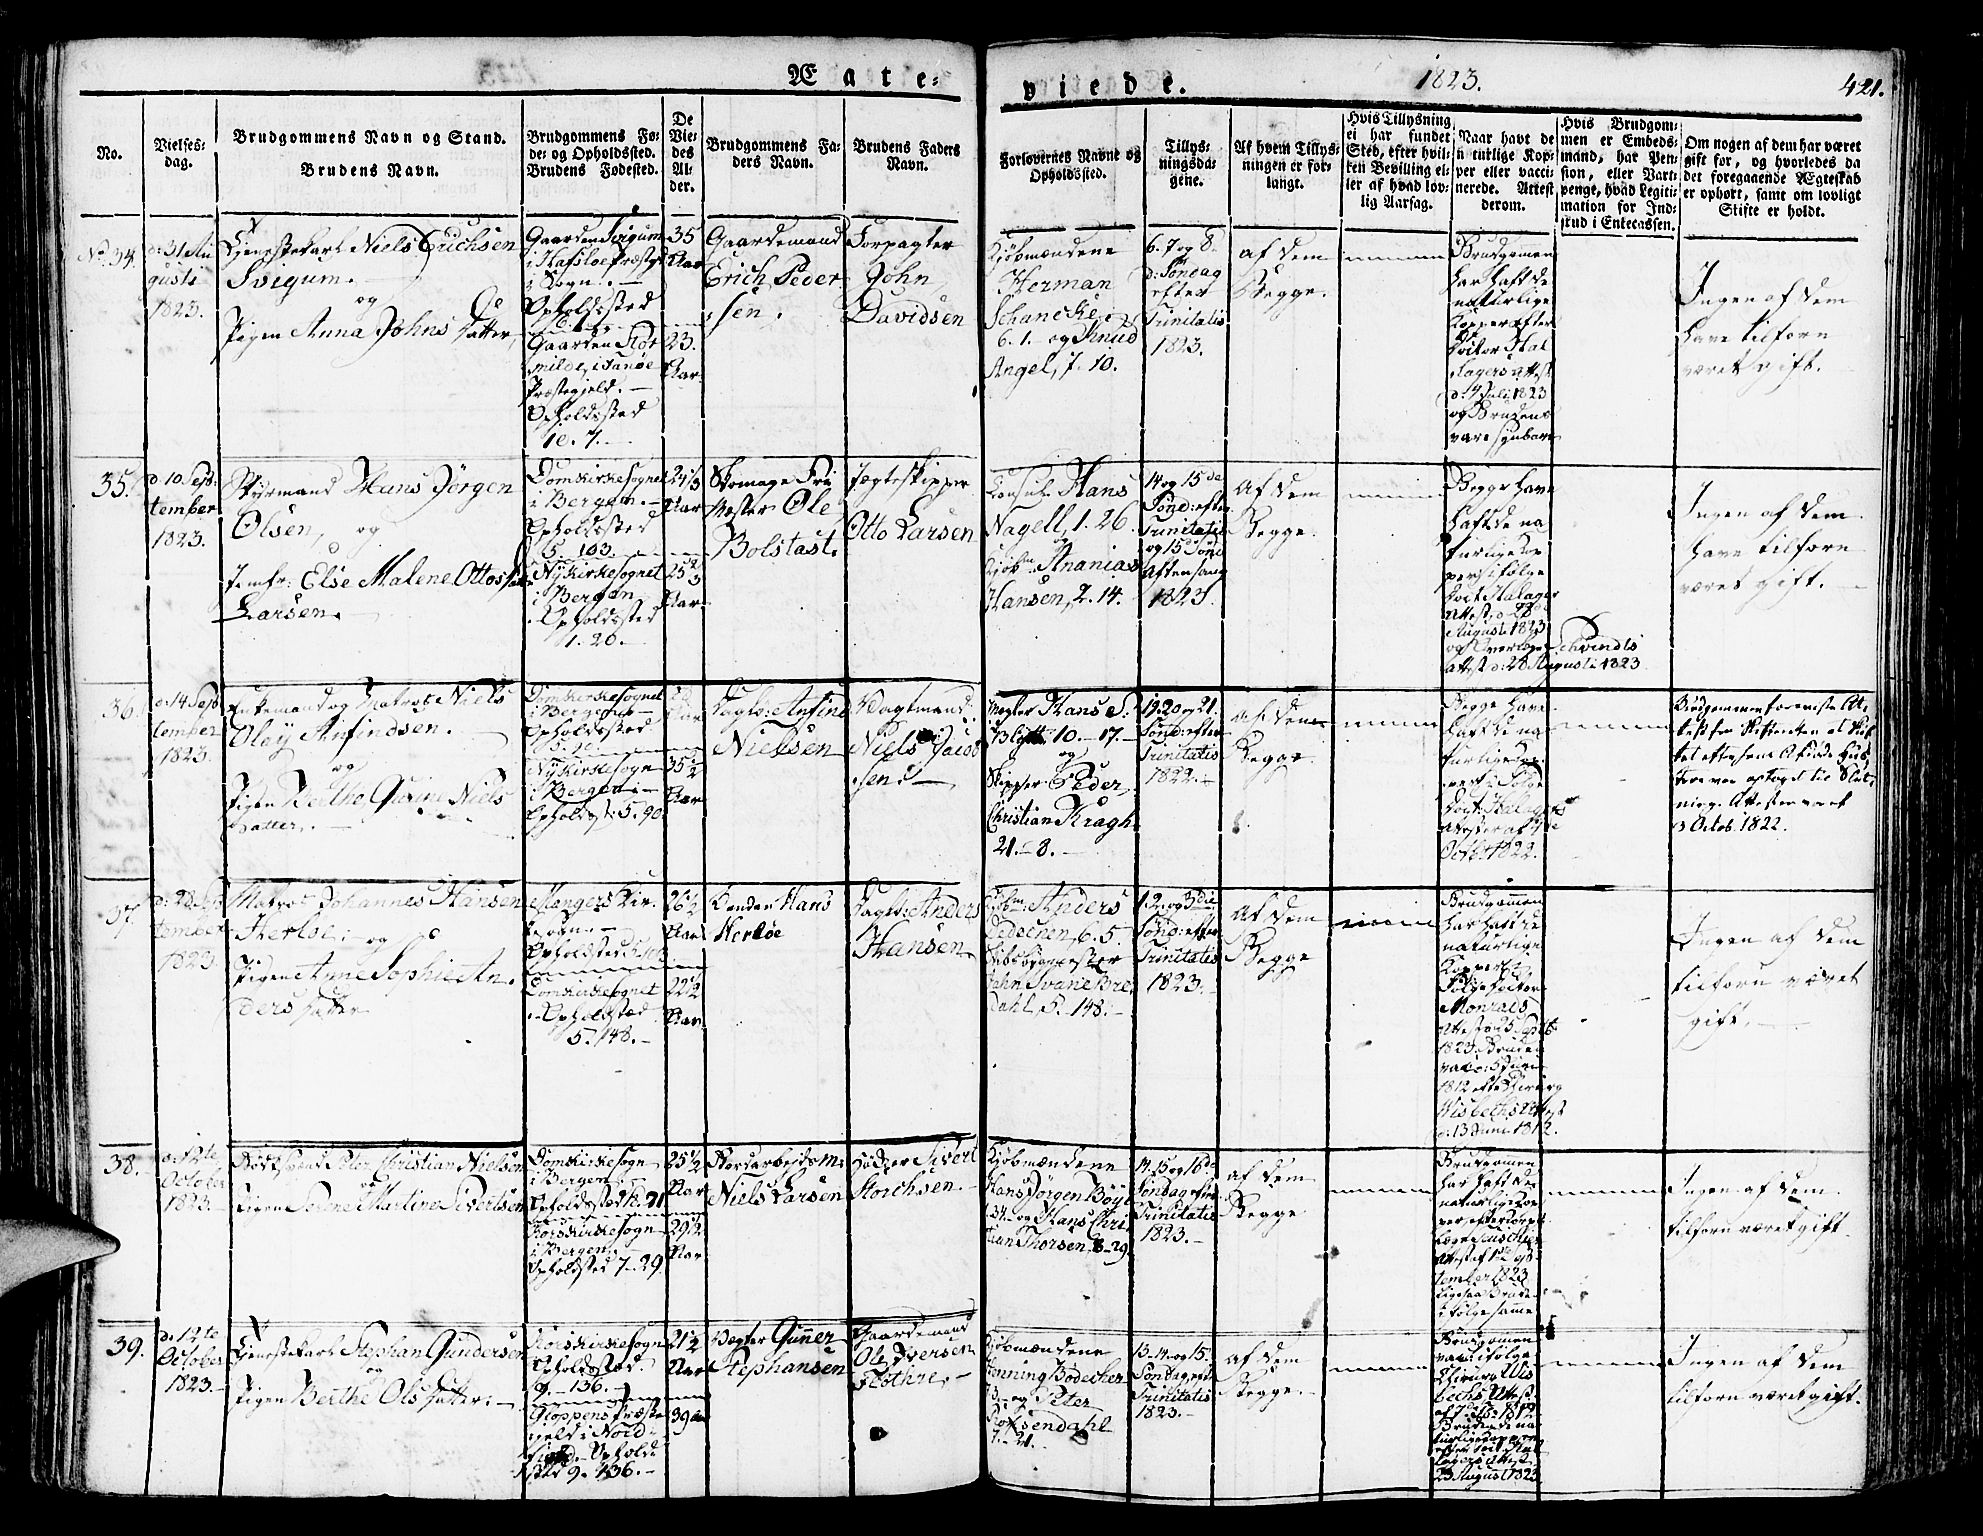 Ægte-
viede.
1823.
421.
No.
Vielses-
dag.
Brudgommens Navn og Stand.
Brudens Navn.
Brudgommens Fø-
de- og Opholdssted.
Brudens Fødested.
De
Vie-
des
Al-
der.
Brudgommens Fa-
ders Navn.
Brudens Faders
Navn.
Forlovernes Navne og
Opholdssted.
Tillys-
ningsda-
gene.
Af hvem Tillys-
ningen er for-
langt.
Hvis Tillysning
ei har fundet
Sted, efter hvil-
ken Bevilling el-
ler af hvad lov-
lig Aarsag.
Naar havt de
n turlige Kop-
per eller vacci-
nerede. Attest
derom.
Hvis Brudgom-
men er Embeds-
mand, har Pen-
sion, eller Vart-
penge, hvad Legiti-
mation for Ind-
skud i Enkecassen.
Om nogen af dem har været
gift før, og hvorledes da
det foregaaende Ægteskab
er ophørt, samt om lovligt
Skifte er holdt.
No. 34.
d. 31 Au
gusti
1823.
Tjenestekarl Niels Erichsen
Svigum.
og
Pigen Anna Johns Datter,
Gaarden Svigum
i Hafsloe Præstg
i Sogn.
Opholdssted
Gaarden Stor
milde, i Fanøe
Præstegjeld.
Opholdssted
10. 7.
35
Aar
23.
Aar
Gaardemand
Erich Peder
sen.
Forpagter
John
Davidsen
Kjøbmændene
Herman
Schancke,
6. 1. og Knud
Angel, 7. 10.
6. 7 og 8.
d: Søndag
efter
Trinitatis
1823.
af dem
Begge.
Brudgomen
har haft de
naturlige
Kopper efter
Doctor Stal
lagers attest
d. 14 Juli 1823
og Brudens
vare synbare
Ingen af dem
have tilforn
været gift.
35.
d. 10 Sep-
tember
1823.
Styrmand Hans Jørgen
Olsen, og
Jomfr: Else Malene Ottos
Larsen.
Domkirkesognet
i Bergen.
Opholdssted
5. 103.
Nykirkesognet
i Bergen,
Opholdssted
1. 20.
24 1/3
Aar
25 2/3
Aar
Mester Ole
Bolstast.
Jægteskipper
Otto Larsen
Consul Hans
Nagell, 1. 26.
og
Kjøbm: Ananias
Hansen, 2. 14.
14 og 15de
Sønd: efter
Trinitatis
og 15 Sønd
Aftensang
1823.
Af dem
Begge.
Begge have
haft de na
turlige Kop
per i følge
Doct Stalager
Attest, d. 28
August 1823
og Schvindts
attest d: 28 August 1823
Ingen af dem
have tilforn
været gift.
36.
d. 14 Sep
tember
1823.
Enkemand og Matros Niels
Oley Anfindsen.
og
Pigen Berthe Qurine Niels
Datter.
Domkirkesognet
i Bergen
Opholdssted
Nykirkesogn
i Bergen
Opholdst: 5. 90.
Aar
35 1/2
Aar
Dagl: Anfind
Nielsen
Vagtmand
Niels Jacob
sen
Mægler Hans S.
Blytt 10. 17.
og
Skipper Peder
Christian Kragh
21. 8.
19. 20 og 21.
Sønd: efter
Trinitatis
1822.
af dem
Begge.
Begge have
haft de na
turlige Kop
per i Følge
Doct: Stalagers
Attester af
Octbr 1822.
3 Octob. 1822.
37.
d: 28 Sep
tember
1823
Matros Johannes Hansen
Herløe. og
Pigen Anne Sophie An
ders Datter
Mangers Kir
Opholdssted 5. 148.
Domkirkesognet
Opholdssted
5. 148.
26 1/2
Aar
22 1/2
Aar
Bonden Hans
Herløe
Dagl: Anders
Hansen
Kjøbm: Anders
Dedechen, 6. 5.
Skibsbygmester
John Svane Bre
dahl, 5. 148.
1. 2. og 3die
Sønd: efter
Trinitatis
1823.
af dem
Begge
Brudgommen
har haft de
naturlige
Kopper i
Følge Doctor
Monrads
Attest d. 25 Septb
1823. Bruden
vac: d: 5 Juni
1812 efter Chirurg
Wisbechs Attest
d: 13 Juni 1812.
Ingen af dem
tilforn været
gift.
38.
d. 12te
October
1823.
Peter Christian Nielsen
og
Pigen Martine Sivertsen
Domkirkesogn
i Bergen
Opholdssted 12. 21
Korskirkesogn
i Bergen.
Opholdssted 7. 29.
25 1/2
Aar
29 1/2
Aar
Niels Larsen
Bødker Sivert
Storchsen.
Kjøbmændene
Hans Jørgen Bøye
og Hans Chri
stian Thorsen, 8. 29.
14. 15 og 16de
Søndag efter
Trinitatis
1823.
af dem
Begge
Brudgomen
har haft de
naturlige Kop
per, efter Corps
læge
Attest af 1ste Sep
tember 1823
ligesaa Bruden
i følge samme
Ingen af dem
tilforn været gift.
39.
d. 12te
October
1823.
Tjenestekarl Stephan Gundersen
og
Pigen Berthe Ols Datter.
Korskirkesogn
Opholdssted
9. 136.
Gloppens Præste
gjeld i Nord
fjord. Opholds
sted 9. 136.
21 1/2
Aar
39 Aar
Vægter Guner
Stephansen
Gaardemand
Ole Iversen
Kjøbmændene
Henning Bödecher
og Peter
Rossendahl
7. 21.
13. 14. og 15.
Søndag efter
Trinitatis
1823.
af dem
Begge.
Brudgomen
vacc: i følge
Chirurg Wis
bechs Attest
af 1812
Bruden de na
turlige Kopper
efter Doct Stal
lagers Attest
23 August 1823
Ingen af dem
tilforn været gift.